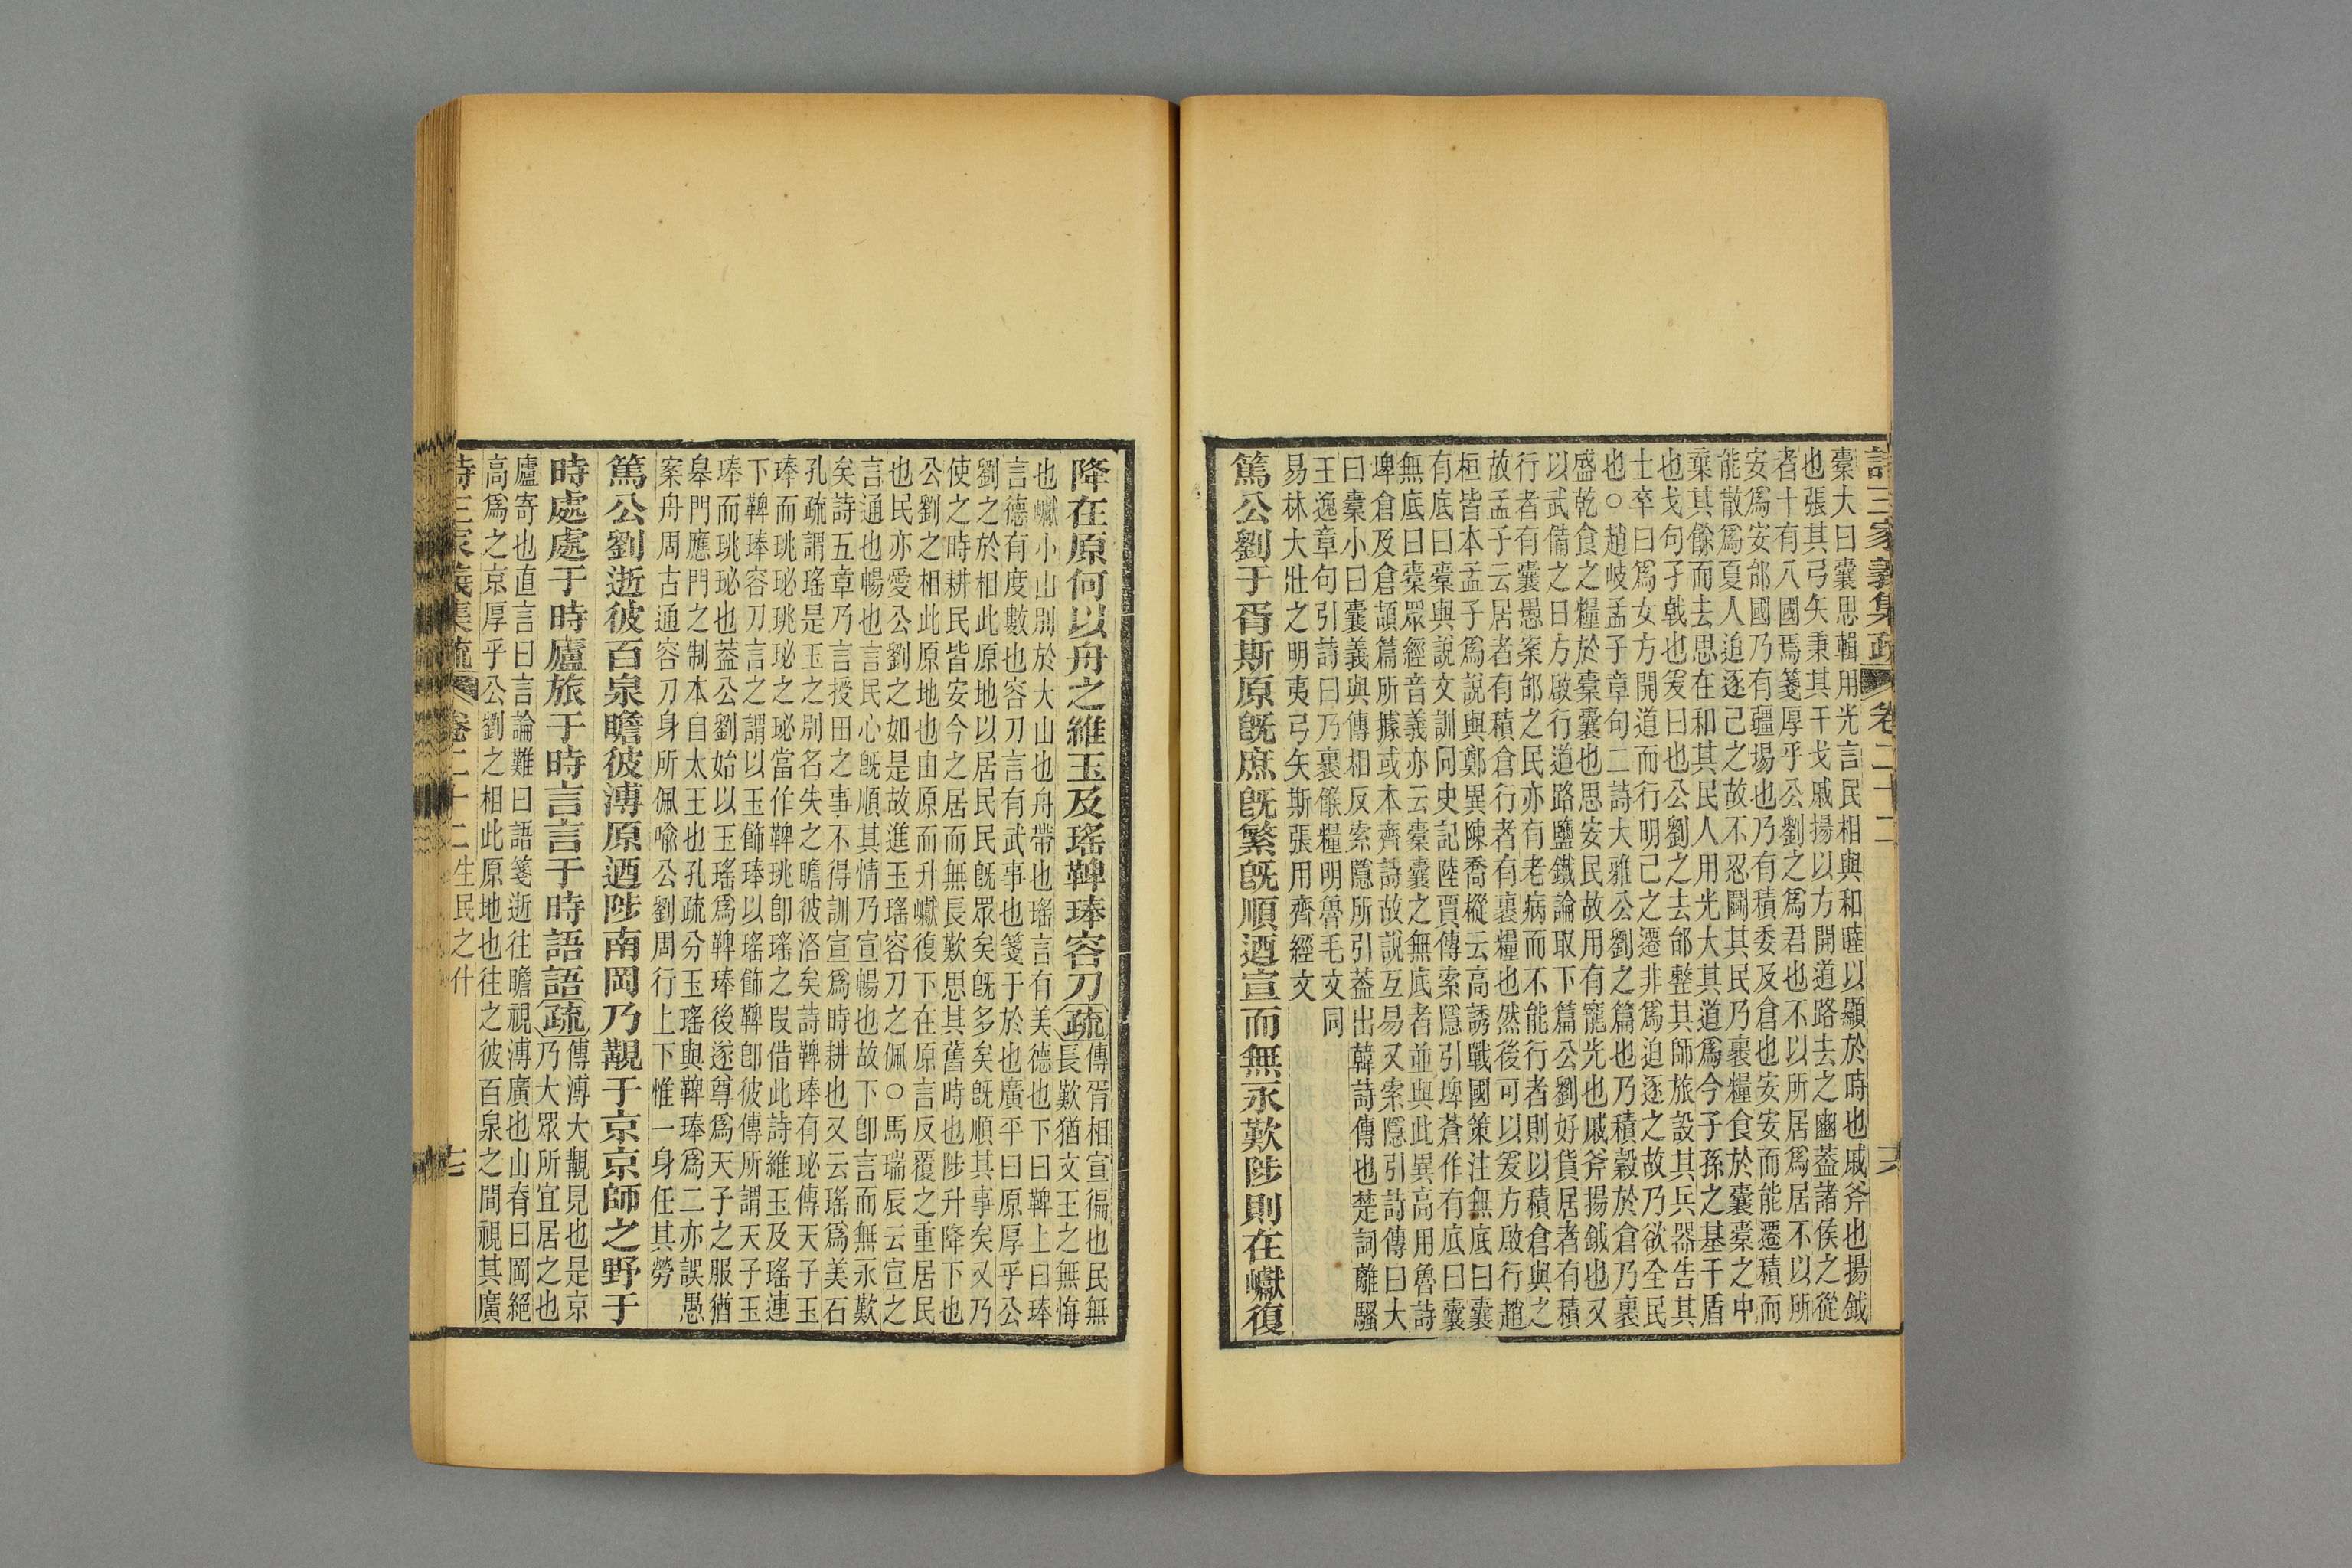 詩三家義集疏 卷二十二 六
橐大曰囊思輯用光言民相與和睦以顯於時也戚斧也揚鉞
也張其弓矢秉其干戈戚揚以方開道路去之豳蓋諸侯之從
者十有八國焉箋厚乎公劉之爲君也不以所居爲居不以所
安爲安邰國乃有疆埸也乃有積委及倉也安安而能遷積而
能散爲夏人迫逐己之故不忍鬬其民乃裹糧食於囊橐之中
棄其餘而去思在和其民人用光大其道爲今子孫之基干盾
也戈句孑戟也爰曰也公劉之去邰整其師旅設其兵器告其
士卒曰爲女方開道而行明己之遷非爲迫逐之故乃欲全民
也○趙岐孟子章句二詩大雅公劉之篇也乃積穀於倉乃裹
盛乾食之糧於橐囊也思安民故用有寵光也戚斧揚鉞也又
以武備之曰方啟行道路鹽鐵論取下篇公劉好貨居者有積
行者有囊愚案邰之民亦有老病而不能行者則以積倉與之
故孟子云居者有積倉行者有裹糧也然後可以爰方啟行趙
桓皆本孟子爲說與鄭異陳喬樅云高誘戰國策注無底曰囊
有底曰橐與說文訓同史記陸賈傳索隱引埤蒼作有底曰囊
無底曰橐眾經音義亦云橐囊之無底者並與此異高用魯詩
埤倉及倉頡篇所據或本齊詩故說互易又案隱引詩傳曰大
曰橐小曰囊義與傳相反索隱所引蓋出韓詩傳也楚詞離騷
王逸章句引詩曰乃裹餱糧明魯毛文同
易林大壯之明夷弓矢斯張用齊經文
篤公劉于胥斯原旣庶旣繁旣順迺宣而無永歎陟則在巘復
降在原何以舟之維玉及瑤鞞琫容刀疏傳胥相宣徧也民無
長歎猶文王之無悔
也巘小山別於大山也舟帶也瑤言有美德也下曰鞞上曰琫
言德有度數也容刀言有武事也箋于於也廣平曰原厚乎公
劉之於相此原地以居民民旣眾矣旣多矣旣順其事矣又乃
使之時耕民皆安今之居而無長歎思其舊時也陟升降下也
公劉之相此原地也由原而升巘復下在原言反覆之重居民
也民亦愛公劉之如是故進玉瑤容刀之佩○馬瑞辰云宣之
言通也暢也言民心旣順其情乃宣暢也故下卽言而無永歎
矣詩五章乃言授田之事不得訓宣爲時耕也又云瑤爲美石
孔疏謂瑤是玉之別名失之瞻彼洛矣詩鞞琫有珌傳天子玉
琫而珧珌珧珌之珌當作鞞珧卽瑤之叚借此詩維玉及瑤連
下鞞琫容刀言之謂以玉飾琫以瑤飾鞞卽彼傳所謂天子玉
琫而珧珌也蓋公劉始以玉瑤爲鞞琫後遂尊爲天子之服猶
皋門應門之制本自太王也孔疏分玉瑤與鞞琫爲二亦誤愚
案舟周古通容刀身所佩喩公劉周行上下惟一身任其勞
篤公劉逝彼百泉瞻彼溥原迺陟南岡乃覯于京京師之野于
時處處于時廬旅于時言言于時語語疏傳溥大覯見也是京
乃大眾所宜居之也
廬寄也直言曰言論難曰語箋逝往瞻視溥廣也山脊曰岡絕
高爲之京厚乎公劉之相此原地也往之彼百泉之間視其廣
詩三家義集疏 卷二十二 生民之什 七